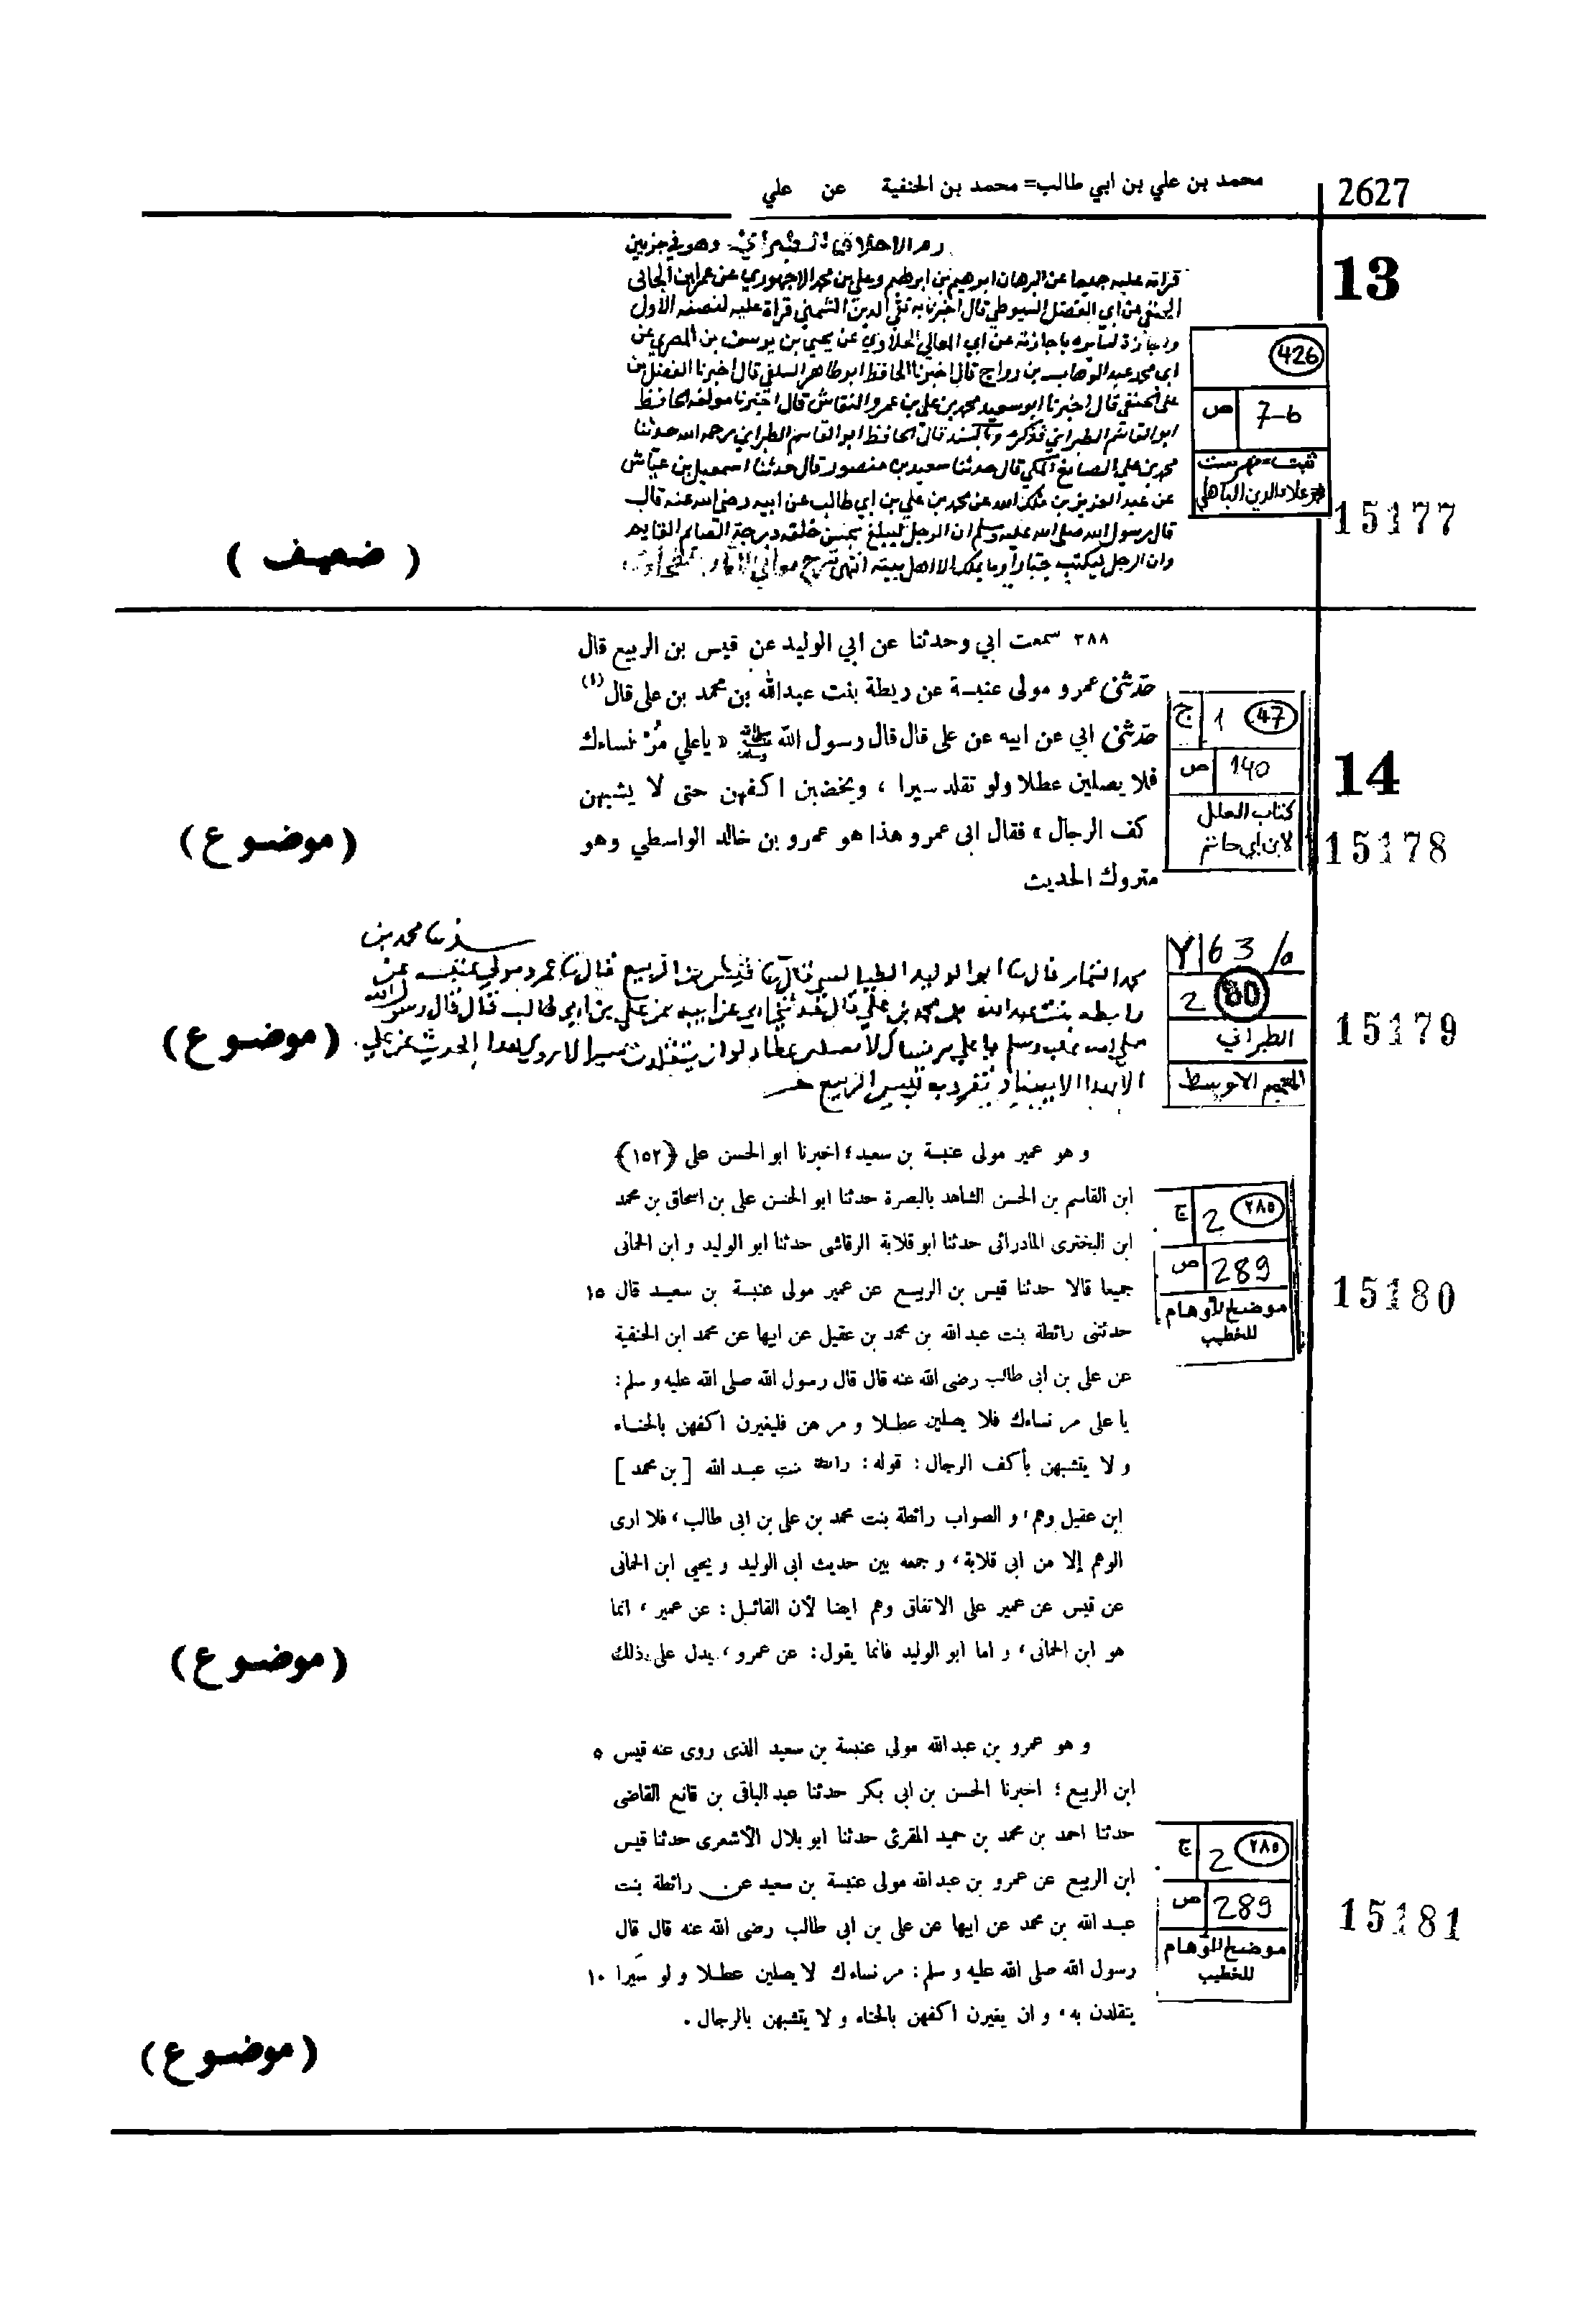 2627
محمد بن علي بن ابي طالب= محمد بن الحنفية عن علي
13
وهو في جزءين
قراته عليه جميعا عن البرهان ابراهيم بن ابراهيم وعلي بن محمد الاجهوري عن عمر ابن الجائي
الحنفي عن ابي الفضل السيوطي قال اخبرنا به تقي الدين الشمني قراة عليه لنصفه الأول
واجازة لسائره باجازته عن ابي المعالي الحلاوي عن يحيى بن يوسف بن المصري عن
ابي محمد عبد الوهاب بن رواج قال اخبرنا الحافظ ابو طاهر السلفي قال اخبرنا الفضل بن
علي الحنفي قال اخبرنا ابو سعيد محمد بن علي بن عمرو النقاش قال اخبرنا مولفه الحافظ
ابو القاسم الطبراني فذكره وبالسند قال الحافظ ابو القاسم الطبراني رحمه الله حدثنا
محمد بن علي الصايغ المكي قال حدثنا سعيد بن منصور قال حدثنا اسمعيل بن عياش
عن عبد العزيز بن عبد الله عن محمد بن علي بن ابي طالب عن ابيه رضي الله عنه قال
قال رسول الله صلى الله عليه وسلم ان الرجل ليبلغ بحسن خلقه درجة الصائم القايم
وان الرجل ليكتب جبارا وما يملك الا اهل بيته انتهى
426
ص 7-6
ثبت = فهرست
علاء الدين الباهلي
15177
( ضعيف )
٢٨٨ سمعت ابي وحدثنا عن ابي الوليد عن قيس بن الربيع قال
حدثني عمرو مولى عنبسة عن ريطة بنت عبدالله بن محمد بن على قال (١)
حدثني ابي عن ابيه عن على قال قال رسول الله ﷺ « يا علي مُرْ نساءك
فلا يصلين عطلا ولو تقلد سيرا ، ويخضبن اكفهن حتى لا يشبهن
كف الرجال » فقال ابى عمرو هذا هو عمرو بن خالد الواسطي وهو
متروك الحديث
47 1 ج
140 ص
كتاب العلل
لابن ابي حاتم
14
15178
( موضوع )
محمد بن
محمد التمار قال نا ابو الوليد الطيالسي قال نا قيس بن الربيع قال نا عمرو مولى عنبسه عن
رابطه بنت عبد الله بن محمد بن علي قال حدثني ابي عن ابيه عن علي بن ابي طالب قال قال رسول الله
صلى الله عليه وسلم يا علي مر نساك لا يصلين عطلا ولو ان يتقلدن سيرا لا يروى هذا الحديث عن علي
الا بهذا الاسناد تفرد به قيس بن الربيع
63
80 2
الطبراني
المعجم الاوسط
15179
( موضوع )
و هو عمير مولى عنبسة بن سعيد ؛ اخبرنا ابو الحسن على ﴿١٥٢﴾
ابن القاسم بن الحسن الشاهد بالبصرة حدثنا ابو الحسن على بن اسحاق بن محمد
ابن البخترى المادرائى حدثنا ابو قلابة الرقاشى حدثنا ابو الوليد و ابن الحمانى
جميعا قالا حدثنا قيس بن الربيع عن عمير مولى عنبسة بن سعيد قال ١٥
حدثتنى رائطة بنت عبد الله بن محمد بن عقيل عن ابيها عن محمد ابن الحنفية
عن على بن ابى طالب رضى الله عنه قال قال رسول الله صلى الله عليه و سلم :
يا على مر نساءك فلا يصلين عطلا و مر هن فليغيرن اكفهن بالحناء
و لا يتشبهن بأكف الرجال : قوله : رائطة بنت عبد الله [ بن محمد ]
ابن عقيل وهم ، و الصواب رائطة بنت محمد بن على بن ابى طالب ، فلا ارى
الوهم إلا من ابى قلابة ، و جمعه بين حديث ابى الوليد و يحيى ابن الحمانى
عن قيس عن عمير على الاتفاق وهم ايضا لأن القائل : عن عمير ، انما
هو ابن الحمانى ، و اما ابو الوليد فانما يقول : عن عمرو ، يدل على ذلك
٢٨٥ 2 ج
289 ص
موضح الأوهام
للخطيب
15180
( موضوع )
و هو عمرو بن عبد الله مولى عنبسة بن سعيد الذى روى عنه قيس ٥
ابن الربيع ؛ اخبرنا الحسن بن ابى بكر حدثنا عبد الباقى بن قانع القاضى
حدثنا احمد بن محمد بن حميد المقرئ حدثنا ابو بلال الأشعرى حدثنا قيس
ابن الربيع عن عمرو بن عبد الله مولى عنبسة بن سعيد عن رائطة بنت
عبد الله بن محمد عن ابيها عن على بن ابى طالب رضى الله عنه قال قال
رسول الله صلى الله عليه و سلم : مر نساءك لا يصلين عطلا و لو سَيرا ١٠
يتقلدن به ، و ان يغيرن اكفهن بالحناء و لا يتشبهن بالرجال .
٢٨٥ 2 ج
289 ص
موضح الأوهام
للخطيب
15181
( موضوع )